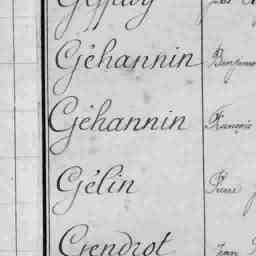 Géhannin
Géhannin François
Gélin Pierre
Gendrot Jean